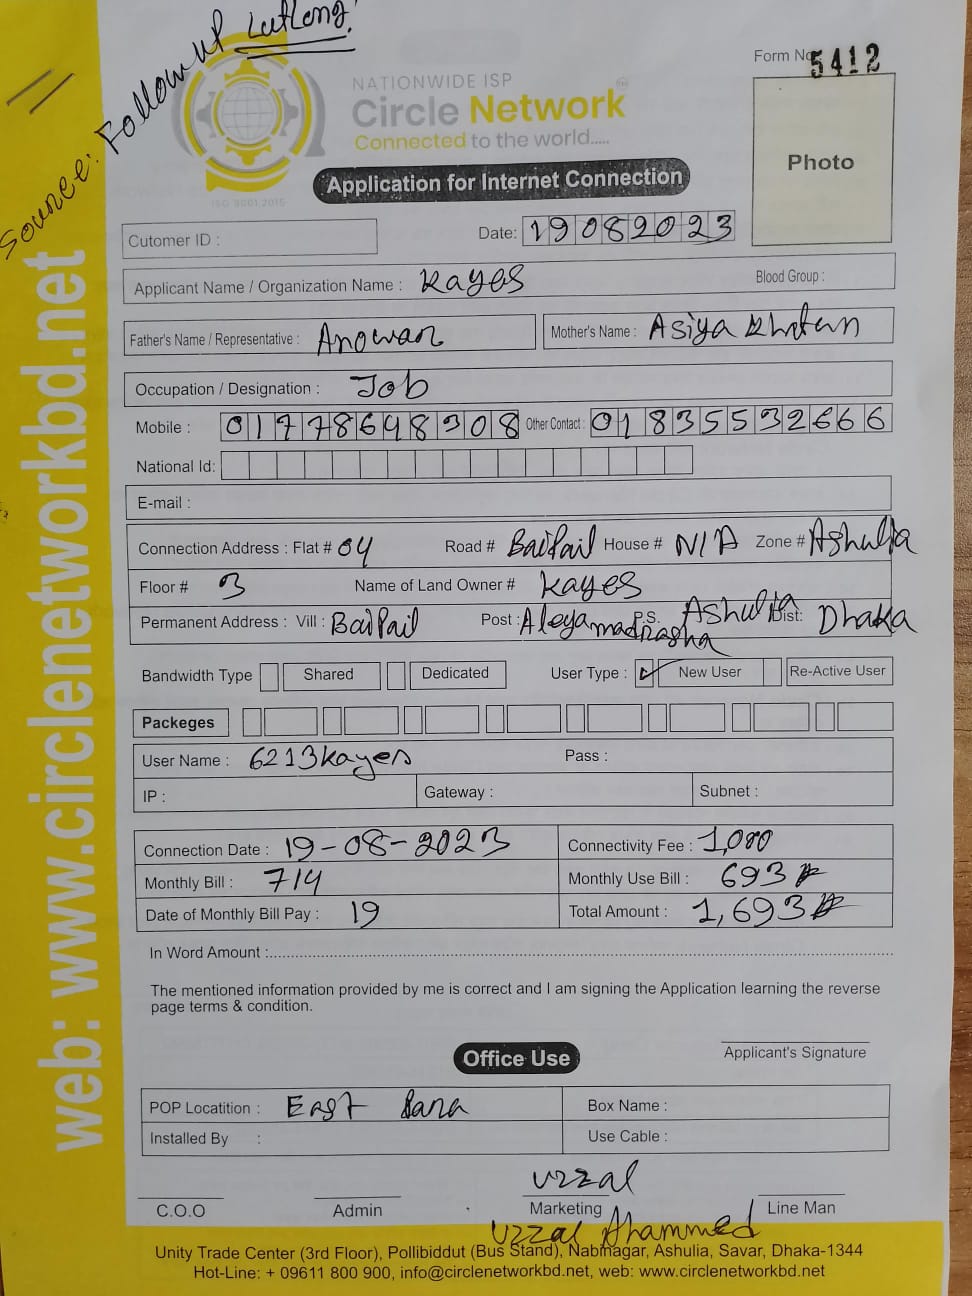 Source: Follow up
Form No 5412
NATIONWIDE ISP
Circle Network
Connected to the world.....
ISO 9001:2015
Photo
Application for Internet Connection
Cutomer ID :
Date: 19082023
Applicant Name / Organization Name : Kayes Blood Group :
Father's Name / Representative : Anowar Mother's Name : Asiya Khatun
Occupation / Designation : Job
Mobile : 01778648308 Other Contact : 01835532666
National Id:
E-mail :
Connection Address : Flat # 04 Road # Baipail House # N/A Zone # Ashulia
Floor # 3 Name of Land Owner # Kayes
Permanent Address : Vill : Baipail Post : Aleya madrasha P.S. Ashulia Dist: Dhaka
Bandwidth Type Shared Dedicated User Type : New User Re-Active User
Packeges
User Name : 6213kayes Pass :
IP : Gateway : Subnet :
Connection Date : 19-08-2023 Connectivity Fee : 1,000
Monthly Bill : 714 Monthly Use Bill : 693
Date of Monthly Bill Pay : 19 Total Amount : 1,693
In Word Amount :
The mentioned information provided by me is correct and I am signing the Application learning the reverse
page terms & condition.
Applicant's Signature
Office Use
POP Locatition : East Box Name :
Installed By : Use Cable :
Uzzal
C.O.O Admin Marketing Line Man
Uzzal Ahammed
Unity Trade Center (3rd Floor), Pollibiddut (Bus Stand), Nabinagar, Ashulia, Savar, Dhaka-1344
Hot-Line: + 09611 800 900, info@circlenetworkbd.net, web: www.circlenetworkbd.net
web: www.circlenetworkbd.net